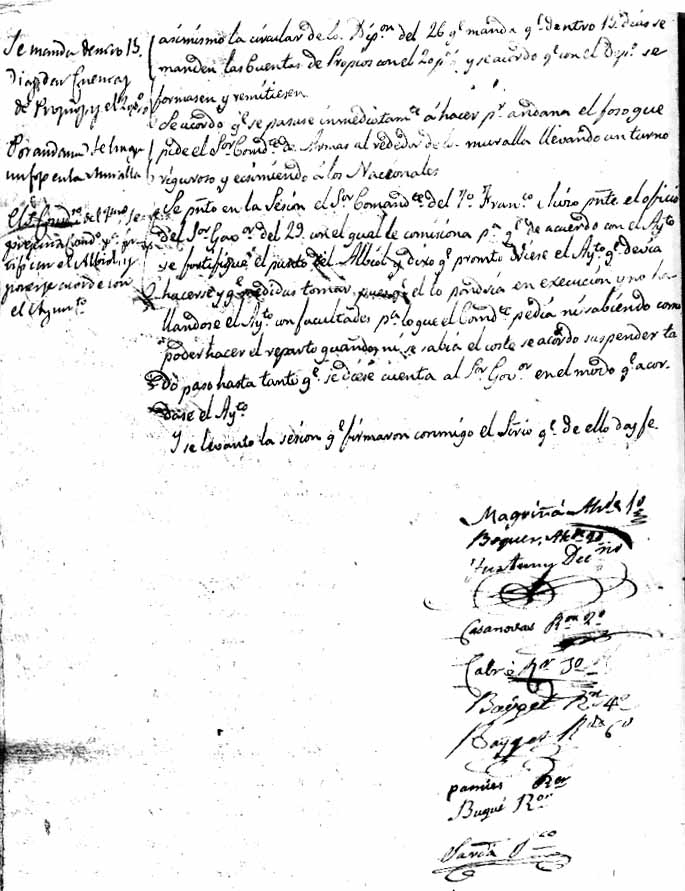 Se manda dentro 15
Dias dar Cuentas
de Propios y el 20 p%
Por andana se haga
un foso en la Muralla
El Sor Comdte del 7mo se
presenta
tificar el Albiol, y
ponerse acorde con
el Ayuntto
asimismo la circular de la Dipon del 26 qe manda qe dentro 15 dias se
manden las Cuentas de Propios con el 20 p% y se acordo qe con el Depo se
formasen y remitiesen.
Se acordo qe se pasase inmediatamte á hacer pr andana el foso que
pide el Sor Comdte de Armas al rededor de la muralla llevando un turno
riguroso y ecsimiendo á los Nacionales
Se pnto en la Sesion el Sor Comandte del 7o Franco é hizo pnte el oficio
del Sor Govor del 29 con el qual le comisiona pa qe de acuerdo con el Ayto
se fortifique el punto del Albiol y dixo qe pronto viese el Ayto qe devia
hacerse y qe medidas tomar pues qe el lo pondria en execucion, y no ha-
llandose el Ayto con facultades pa lo que el Comdte pedia ni sabiendo como
poder hacer el reparto quando ni se sabia el coste se acordo suspender to
do paso hasta tanto qe se diese cuenta al Sor Govor en el modo qe acor-
dase el Ayto
Y se levantó la sesion qe firmaron conmigo el Strio qe de ello doy fe.
Magriñá Alde 1o
Bóquer, Alde 2o
Fustuny Decno
Casanovas Ror 2o
Cabré Ror 3o
Ror 4o
Ror 6o
pamies Ror
Buqué Ror
Sardá Sco